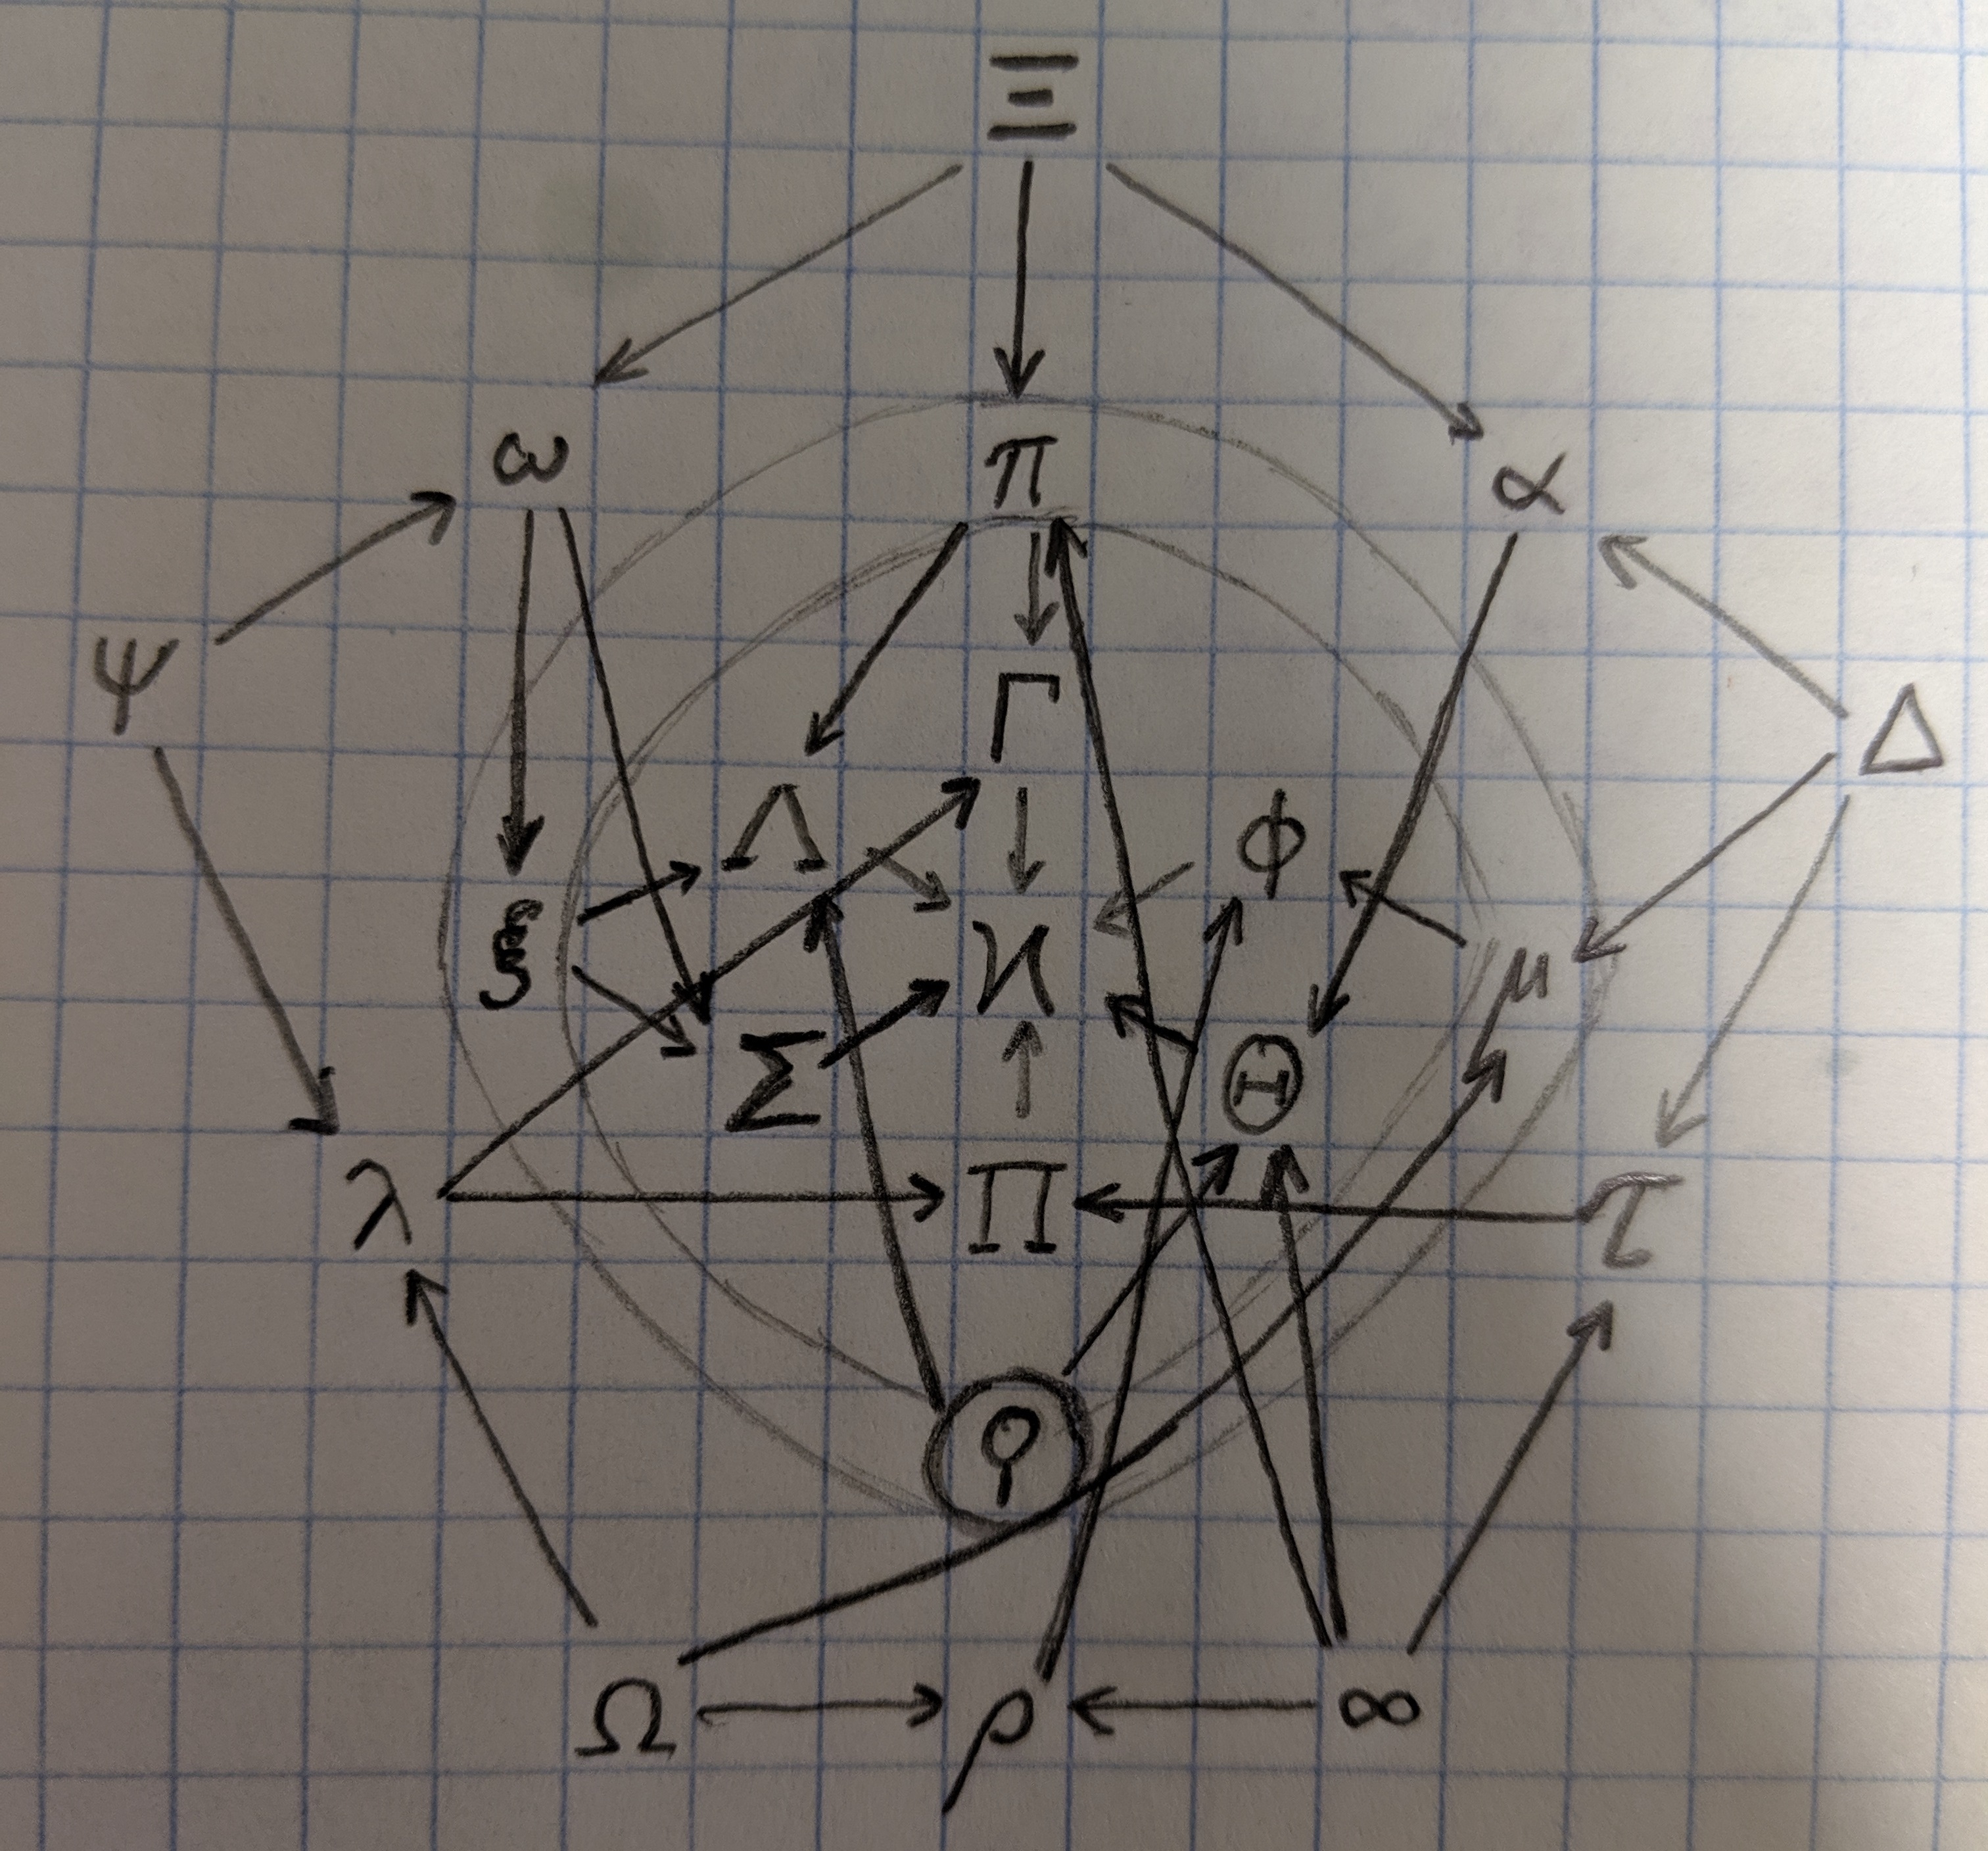 Ξ
ω π α
ψ Γ Δ
Λ ϕ
ξ ϰ μ
Σ Θ
λ Π τ
ϙ
Ω ρ ∞